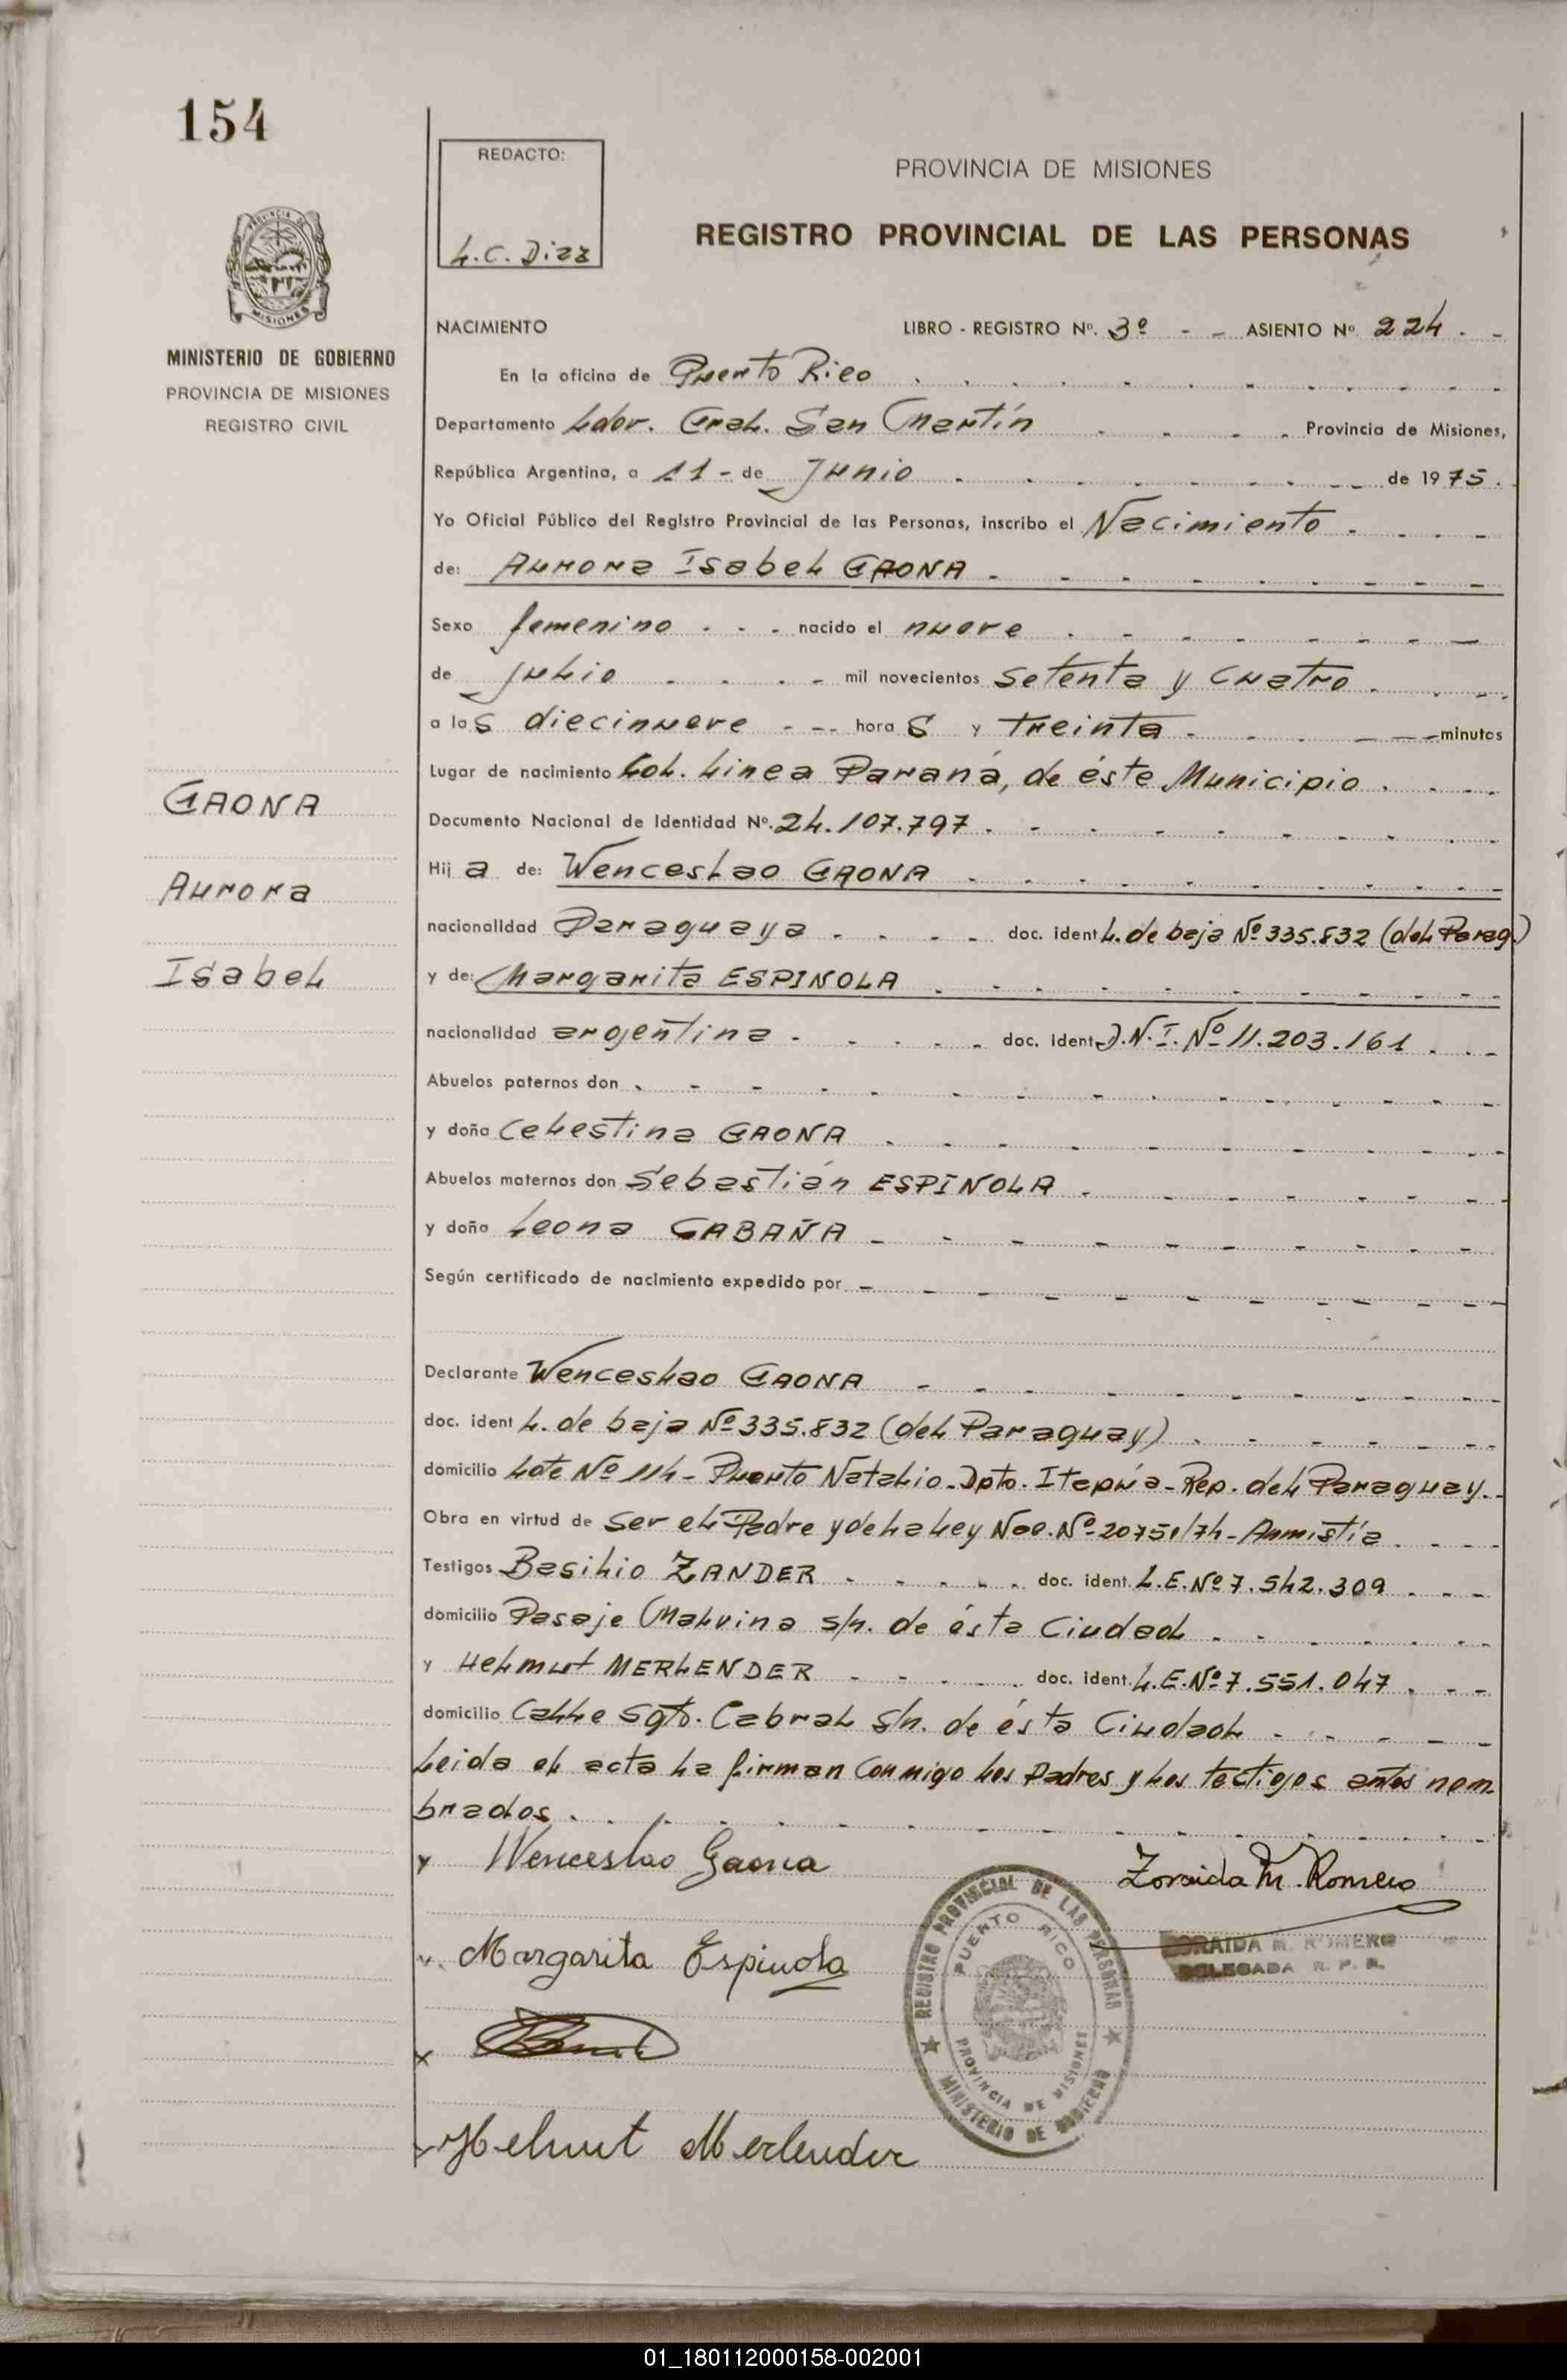 154
REDACTO:
L.C. Diaz
PROVINCIA DE MISIONES
REGISTRO PROVINCIAL DE LAS PERSONAS
PROVINCIA DE
MISIONES
MINISTERIO DE GOBIERNO
PROVINCIA DE MISIONES
REGISTRO CIVIL
NACIMIENTO LIBRO - REGISTRO Nº. 3º - - ASIENTO Nº 224. -
En la oficina de Puerto Rico
Departamento Ldor. Gral. San Martín Provincia de Misiones,
República Argentina, a 11 - de Junio de 1975.
Yo Oficial Público del Registro Provincial de las Personas, inscribo el Nacimiento
de: Aurora Isabel GAONA
Sexo femenino nacido el nueve
de Julio mil novecientos setenta y cuatro
a las diecinueve hora s y treinta minutos
Lugar de nacimiento Col. Linea Paraná, de éste Municipio
GAONA
Aurora
Isabel
Documento Nacional de Identidad Nº. 24.107.797
Hij a de: Wenceslao GAONA
nacionalidad Paraguaya doc. ident L. de baja Nº 335.832 (del Parag.)
y de: Margarita ESPINOLA
nacionalidad argentina doc. ident D.N.I. Nº 11.203.161
Abuelos paternos don
y doña Celestina GAONA
Abuelos maternos don Sebastián ESPÍNOLA
y doña Leona CABAÑA
Según certificado de nacimiento expedido por
Declarante Wenceslao GAONA
doc. ident L. de baja Nº 335.832 (del Paraguay)
domicilio Lote Nº 114 - Puerto Natalio - Dpto. Itapúa - Rep. del Paraguay.
Obra en virtud de ser el Padre y de la Ley Nac. Nº 20751/74 - Anmistía
Testigos Basilio ZANDER doc. ident. L.E. Nº 7.542.309
domicilio Pasaje Malvina s/n. de ésta Ciudad
y Helmut MERLENDER doc. ident. L.E. Nº 7.551.047
domicilio Calle Sgto. Cabral s/n. de ésta Ciudad
Leida el acta la firman conmigo los Padres y los testigos antes nom-
brados.
Wenceslao Gaona
Zoraida M. Romero
Margarita Espinola
ZORAIDA M. ROMERO
DELEGADA R. P. P.
REGISTRO PROVINCIAL DE LAS PERSONAS
PUERTO RICO
PROVINCIA DE MISIONES
MINISTERIO DE GOBIERNO
Helmut Merlender
01_180112000158-002001